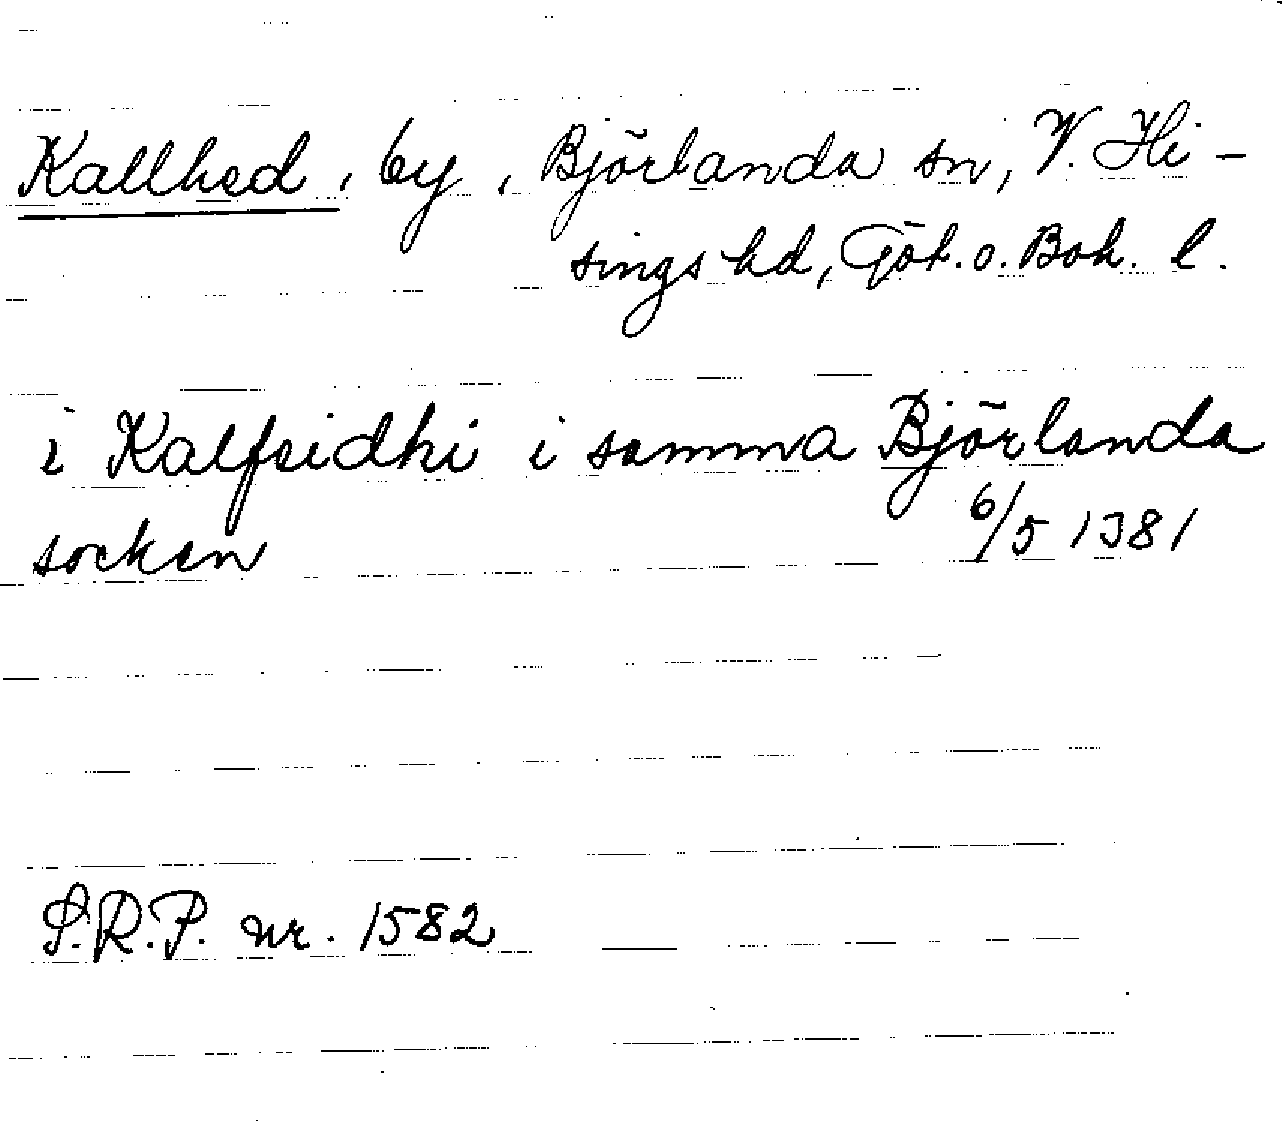 Kallhed, by, Björlanda sn, V. Hi-
sings hd, Göt. o. Boh. l.
i Kalfeidhi i samma Björlanda
socken 6/5 1381
S.R.P. nr. 1582